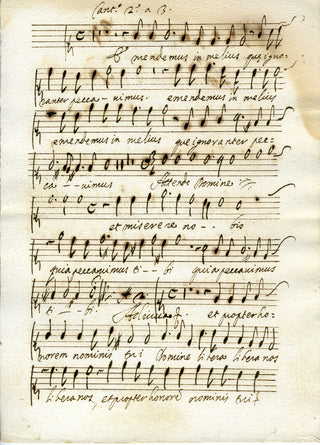 Cant.º 2.º a 3.
Emendemus in melius que igno-
ranter pecca - vimus. emendemus in melius
emendemus in melius que ignoranter pec-
ca - - vimus Attende Domine
et miserere no - - bis
quia peccavimus ti - - bi quia peccavimus
ti - - bi. Adiuva et propter ho-
norem nominis tui Domine libera libera nos
libera nos et propter honorē nominis tui